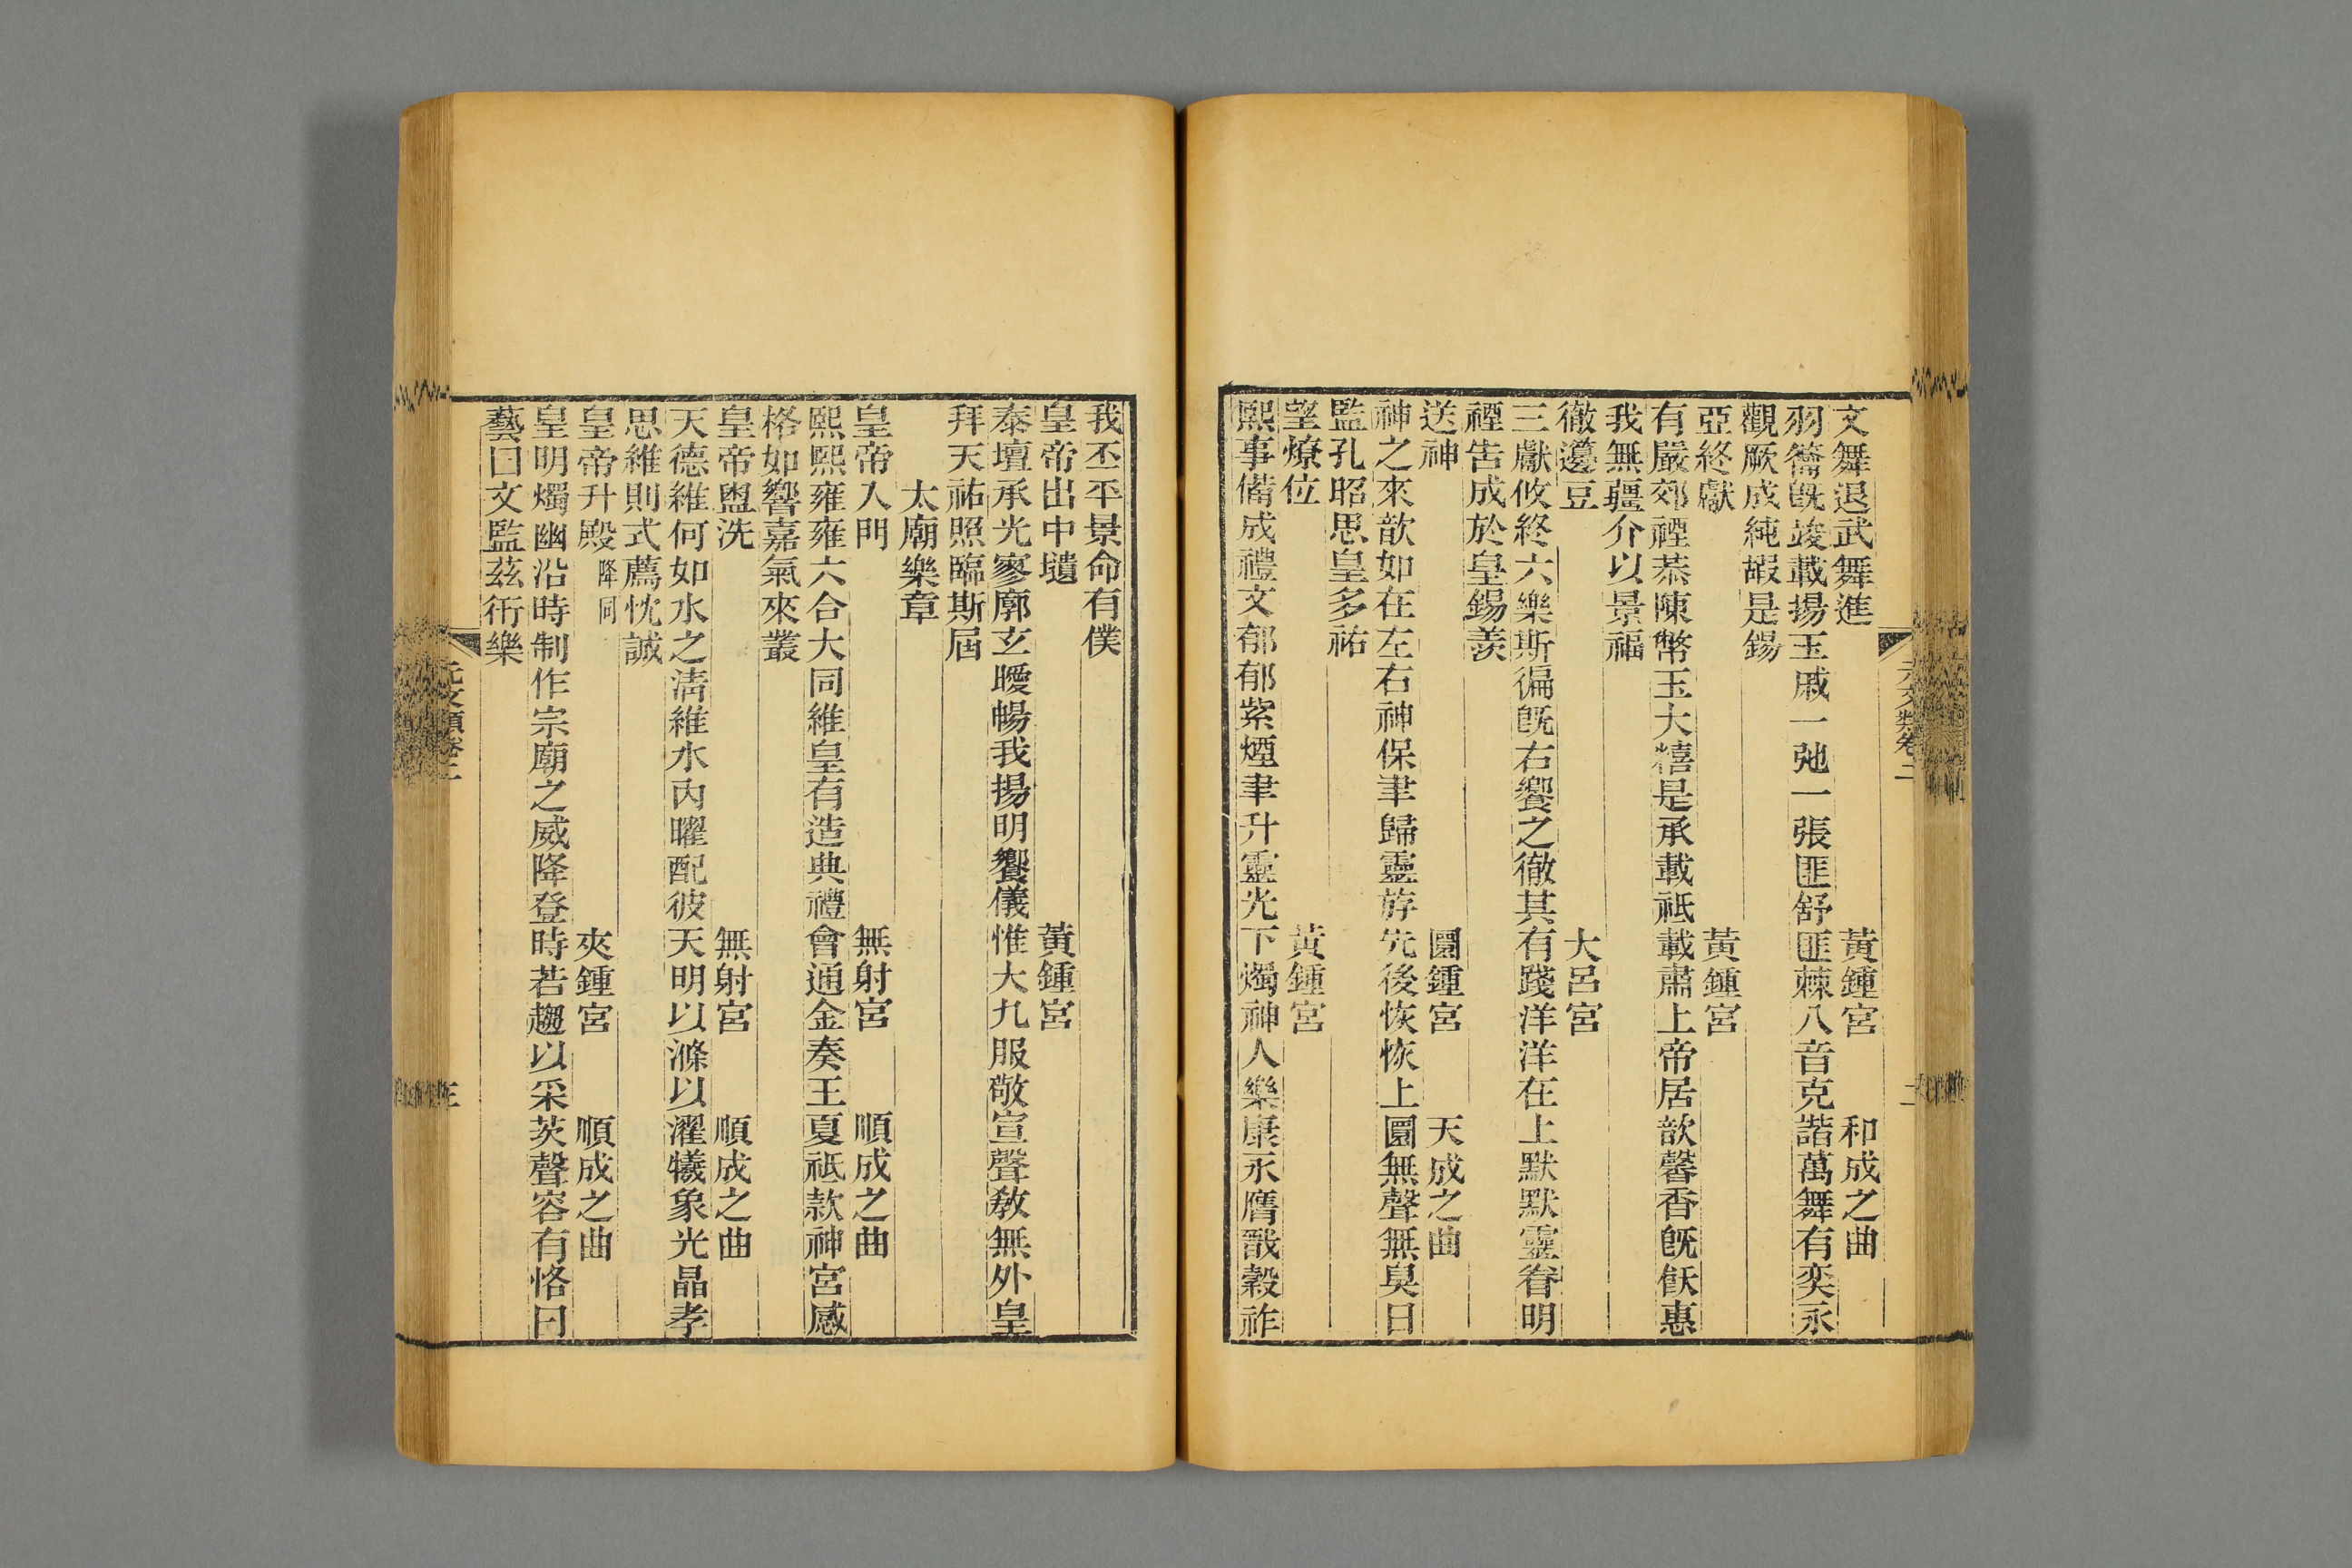 文舞退武舞進　黃鍾宮　和成之曲
羽籥旣竣載揚玉戚一弛一張匪舒匪棘八音克諧萬舞有奕永
觀厥成純嘏是錫
亞終獻　黃鍾宮
有嚴郊禋恭陳幣玉大禧是承載祗載肅上帝居歆馨香旣飫惠
我無疆介以景福
徹籩豆　大呂宮
三獻攸終六樂斯徧旣右饗之徹其有踐洋洋在上默默靈眷明
禋告成於皇錫羡
送神　圜鍾宮　天成之曲
神之來歆如在左右神保聿歸靈斿先後恢恢上圜無聲無臭日
監孔昭思皇多祐
望燎位　黃鍾宮
熙事備成禮文郁郁紫煙聿升靈光下燭神人樂康永膺戩穀祚
我丕平景命有僕
皇帝出中壝　黃鍾宮
泰壇承光寥廓玄曖暢我揚明饗儀惟大九服敬宣聲敎無外皇
拜天祐照臨斯屆
太廟樂章
皇帝入門　無射宮　順成之曲
熙熙雍雍六合大同維皇有造典禮會通金奏王夏祗款神宮感
格如響嘉氣來叢
皇帝盥洗　無射宮　順成之曲
天德維何如水之淸維水內曜配彼天明以滌以濯犧象光晶孝
思維則式薦忱誠
皇帝升殿　降同　夾鍾宮　順成之曲
皇明燭幽沿時制作宗廟之威降登時若趨以采茨聲容有恪曰
藝曰文監茲衎樂
元文類卷二